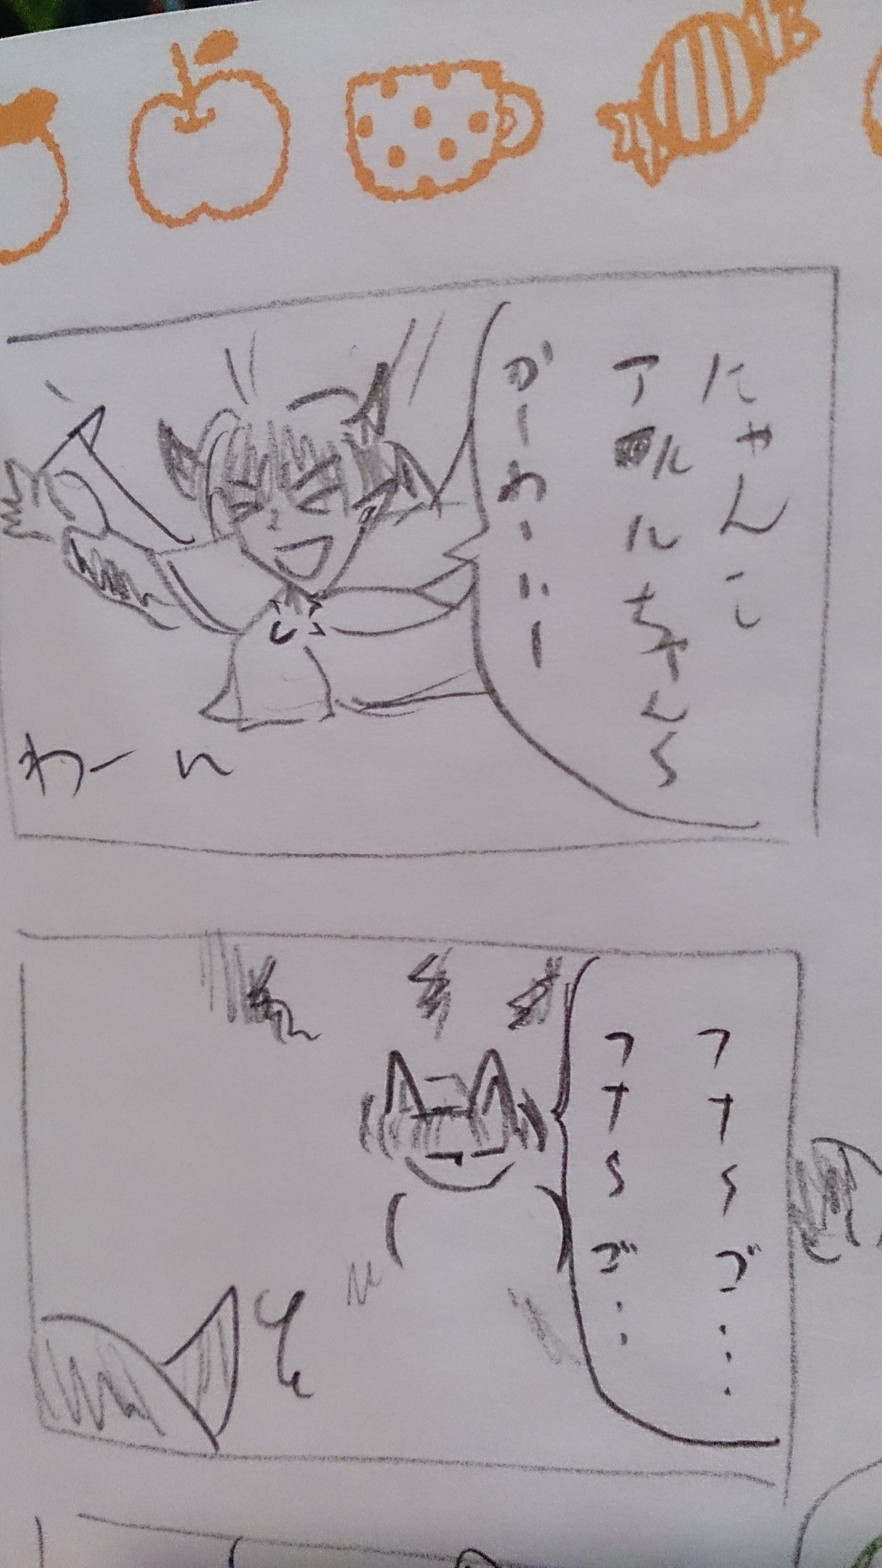 にゃんこ
アルルちゃん〜
がーわいいー
わーい
フナ〜ゴ…
フナ〜ゴ‥